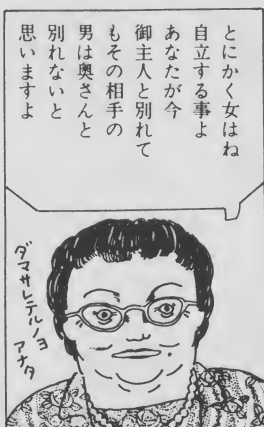 とにかく女はね
自立する事よ
あなたが今
御主人と別れて
もその相手の
男は奥さんと
別れないと
思いますよ
ダマサレテルノヨ
アナタ